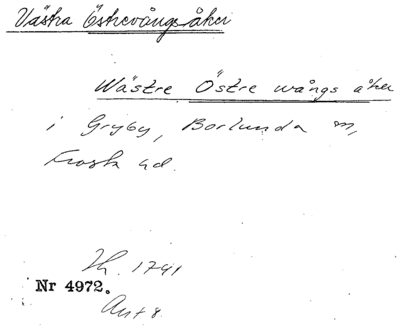 Västra Östrevångsåker
Wästre Östre wångs åker
i Gryby, Borlunda sn,
Frosta hd.
Lh. 1741
Nr 4972.